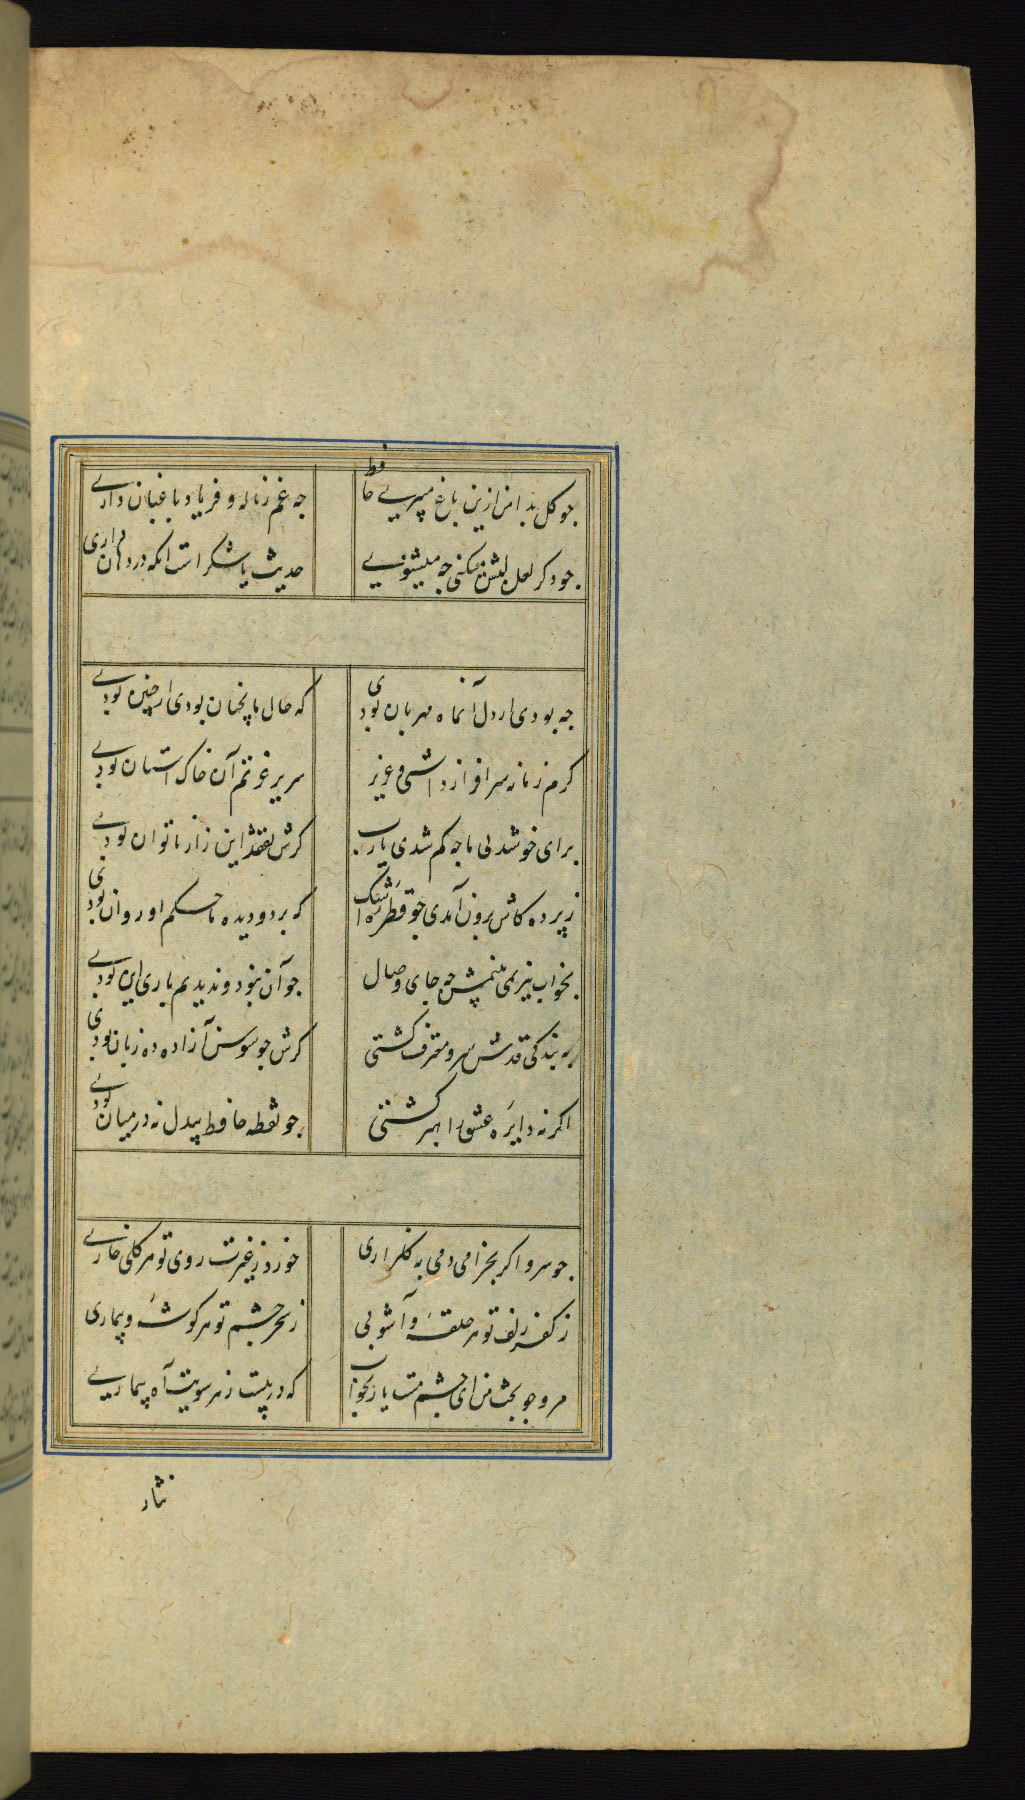 چو گل بدامن ازین باغ میبری حافظ
چه غم ز ناله و فریاد باغبان داری
چو ذکر لعل لبش میکنی چه میشنوی
حدیث با شکر است انکه در دهان داری
چه بودی ار دل آنماه مهربان بودی
که حال ما نچنان بودی ار چنین بودی
کرم زمانه سرافراز داشتی و عزیز
سریر عزتم آن خاک استان بودی
برای خوشدلی ما چه کم شدی یارب
کرش این زار ناتوان بودی
ز پرده کاش برون آمدی چو قطره اشک
که بر دو دیده ما حکم او روان بودی
بخواب نیز نمی بینمش چه جای وصال
چو آن نبود و ندیدیم باری این بودی
به بندکی قدش سرو معترف کشتی
کرش چو سوسن آزاده ده زبان بودی
اکر نه دایره عشق راه بر کشتی
چو نقطه حافظ بیدل نه در میان بودی
چو سرو اکر بخرامی دمی به کلزاری
خورد ز غیرت روی تو هر کلی خاری
ز کفر زلف تو هر حلقه و آشوبی
ز سحر چشم تو هر کوشه و بیماری
مرو چو بخت من ای چشم مست یار بخواب
که در پیست ز هر سویت آه بیماری
نثار